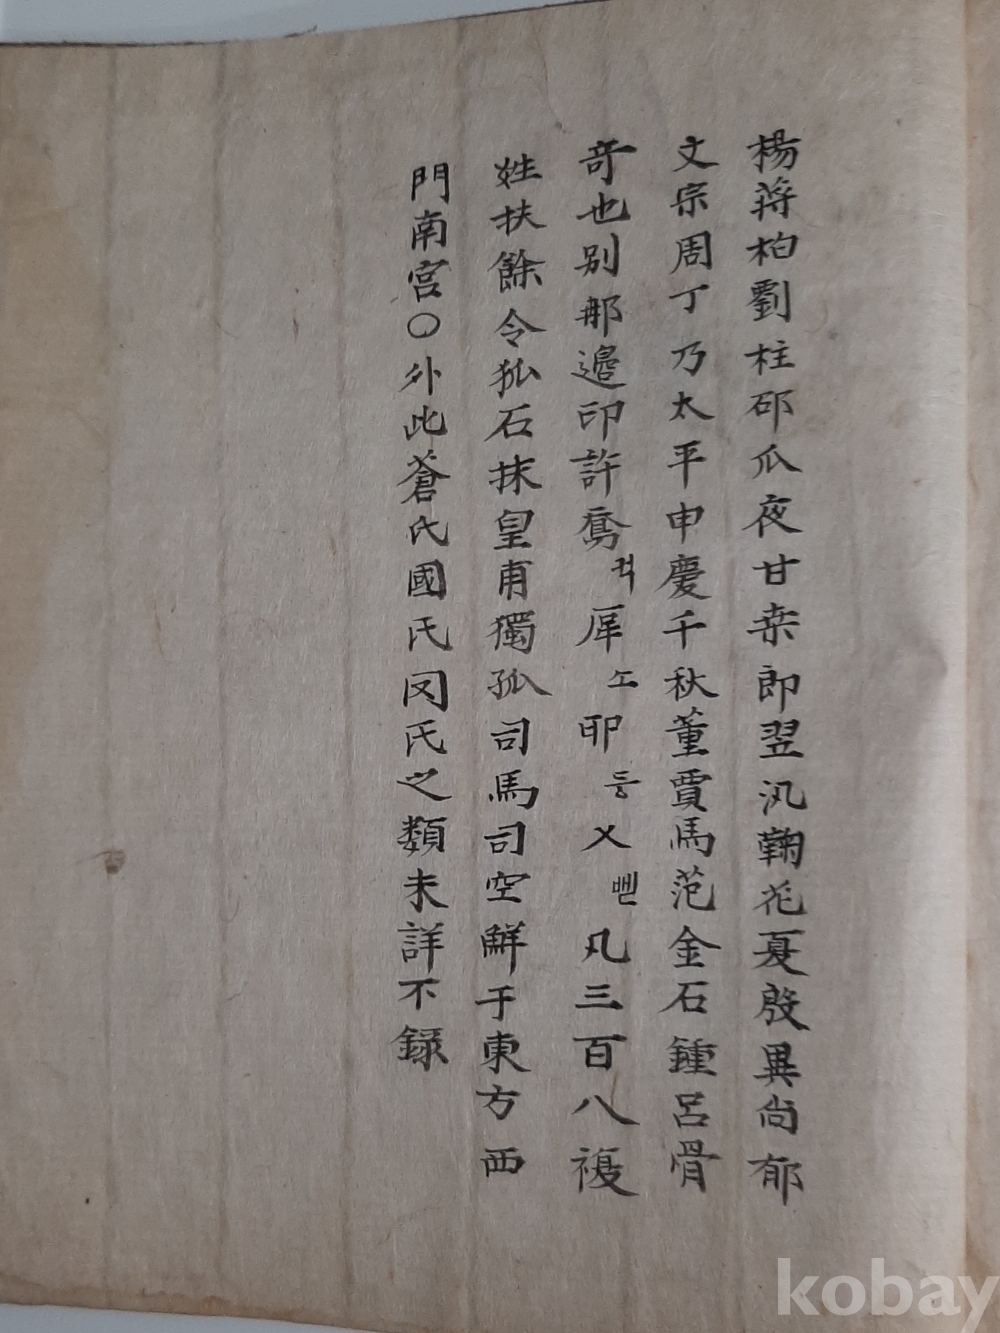 楊蔣柏劉柱邵瓜夜甘桒郎翌汎鞠花夏殷異尙郁
文宗周丁乃太平申慶千秋董賈馬范金石鍾呂骨
奇也别那邉印許騫 걱 庢 소 耶 둥 乂 뻰 凡三百八複
姓扶餘令狐石抹皇甫獨孤司馬司空鮮于東方西
門南宮〇外此蒼氏國氏民氏之類未詳不録
kobay